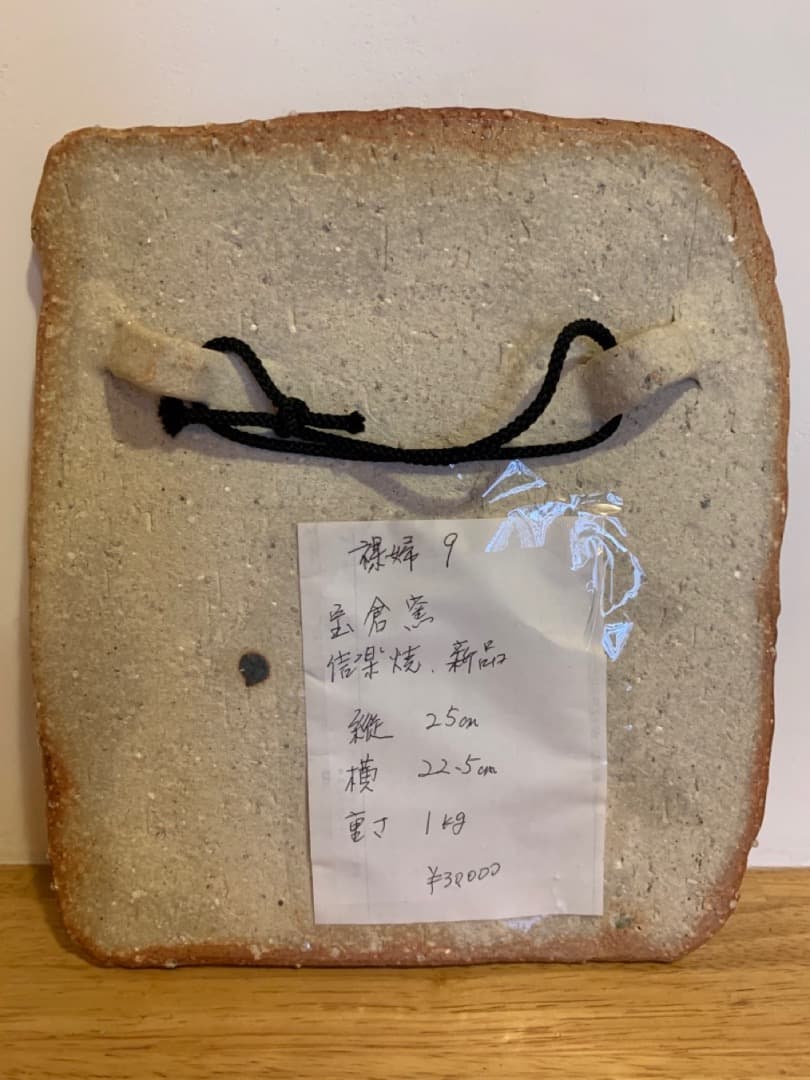 裸婦 9
宝倉窯
信楽焼、新品
縦 25cm
横 22.5cm
重さ 1kg
¥30000